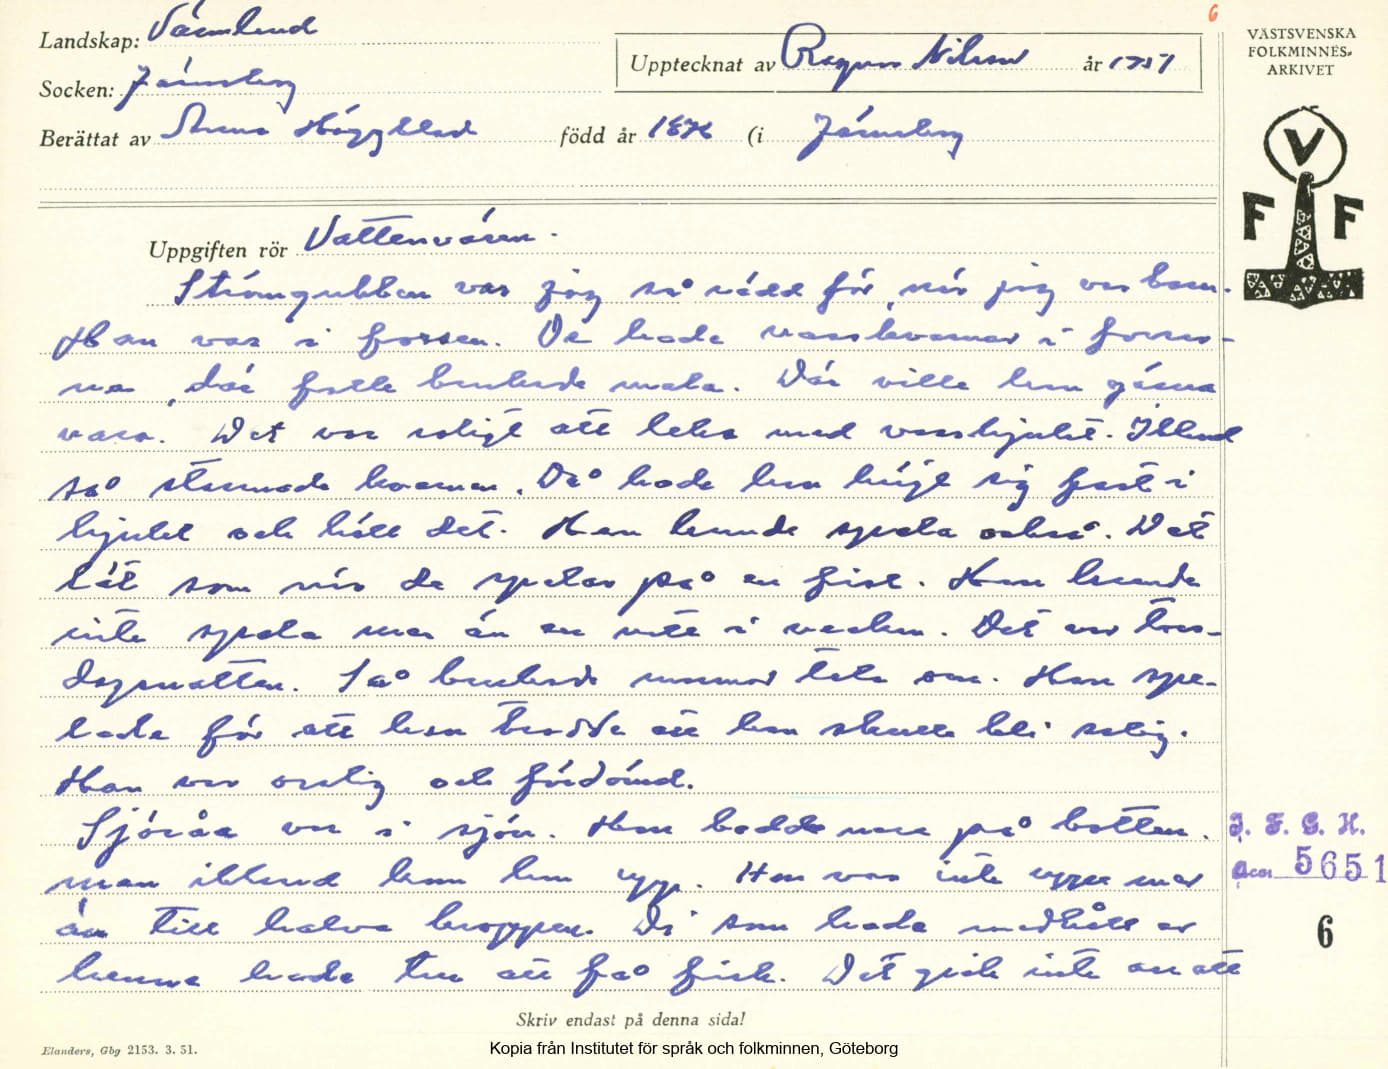 6
Landskap: Värmland
Socken: Järnsberg
Berättat av Anna Häggblad född år 1876 (i Järnsberg
Upptecknat av Ragnar Nilsson år 1951
VÄSTSVENSKA
FOLKMINNES-
ARKIVET
V
F F
Uppgiften rör Vattenväsen.
Strömgubben var jag så rädd för, när jag var barn.
Han var i forsen. De hade vasskvarnar i forsar-
na, där folk brukade mala. Där ville han gärna
vara. Det var roligt att leka med vasshjulet. Ibland
så stannade kvarnen. Då hade han höjt sig fast i
hjulet och höll det. Han kunde spela också. Det
lät som när de spelar på en fiol. Han kunde
inte spela mer än en natt i veckan. Det var tors-
dagsnatten. Så brukade mormor tala om. Han spe-
lade för att han trodde att han skulle bli salig.
Han var osalig och fördömd.
Sjöråa var i sjön. Hon bodde nere på botten.
men ibland kom hon upp. Hon var inte uppe mer
än till halva kroppen. Di som hade medhåll av
henne hade tur att få fisk. Det gick inte an att
J. F. G. H.
Acc. 5651
6
Skriv endast på denna sida!
Elanders, Gbg 2153. 3. 51.
Kopia från Institutet för språk och folkminnen, Göteborg